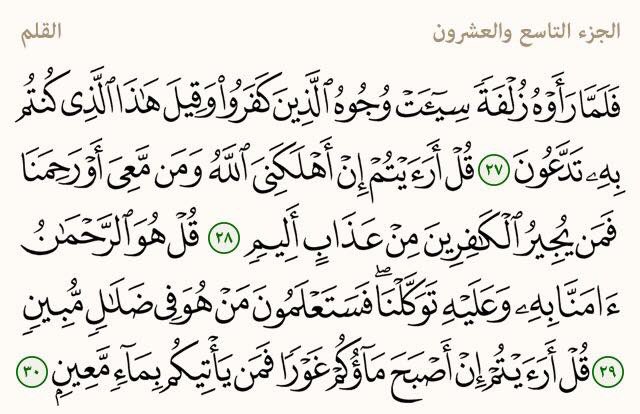 الجزء التاسع والعشرون
القلم
فَلَمَّا رَأَوْهُ زُلْفَةً سِيٓـَٔتْ وُجُوهُ ٱلَّذِينَ كَفَرُوا۟ وَقِيلَ هَٰذَا ٱلَّذِى كُنتُم
بِهِۦ تَدَّعُونَ ٢٧ قُلْ أَرَءَيْتُمْ إِنْ أَهْلَكَنِىَ ٱللَّهُ وَمَن مَّعِىَ أَوْ رَحِمَنَا
فَمَن يُجِيرُ ٱلْكَٰفِرِينَ مِنْ عَذَابٍ أَلِيمٍ ٢٨ قُلْ هُوَ ٱلرَّحْمَٰنُ
ءَامَنَّا بِهِۦ وَعَلَيْهِ تَوَكَّلْنَا ۖ فَسَتَعْلَمُونَ مَنْ هُوَ فِى ضَلَٰلٍ مُّبِينٍ
٢٩ قُلْ أَرَءَيْتُمْ إِنْ أَصْبَحَ مَآؤُكُمْ غَوْرًا فَمَن يَأْتِيكُم بِمَآءٍ مَّعِينٍ ٣٠